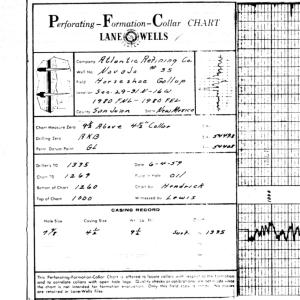 Perforating - Formation - Collar CHART
LANE WELLS
Company Atlantic Refining Co.
Well No. Navajo # 35
Field Horseshoe Gallup
Sec. 29-31N-16W
1980 FNL - 1980 FEL
County San Juan State New Mexico
Chart Measure Zero Above Collar
Drilling Zero RKB
Point Datum Point GL
Driller's TD 1335 Date 6-4-59
Chart TD 1269 Fluid in Hole Oil
Bottom of Chart 1260 Chart by Hendrick
Top of Chart 1000 Witnessed by Lewis
CASING RECORD
Hole Size Casing Size Wt. Lb. Ft.
7 7/8 4 1/2 Surf. 1335
This Perforating-Formation-Collar Chart is offered to locate collars with respect to the formation
and to correlate collars with open hole logs. Quality checks or calibrations are not made since
the chart is not intended for formation evaluation. Only this field copy is made. No
are retained in Lane-Wells files.